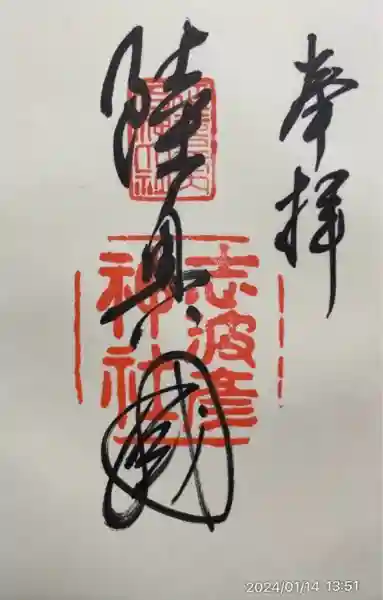 奉拝
陸奥國
志波彦
神社
2024/01/14 13:51